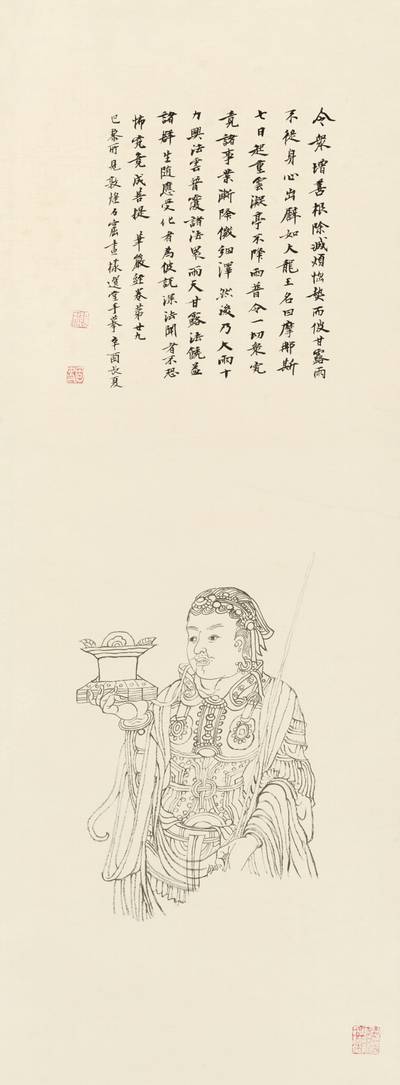 令眾增善根除滅煩惱熱而甘露雨
不從身心出辟如大龍王名曰摩那斯
七日起重雲凝亭不降雨普令一切眾究
竟諸事業漸降微細澤然後乃大雨十
力興法雲普覆諸法界雨天甘露法饒益
諸群生隨應受化者為彼說深法聞者不恐
怖究竟成菩提 華嚴經卷第廿九
巴黎所見敦煌石窟畫樣選堂手摹辛酉長夏